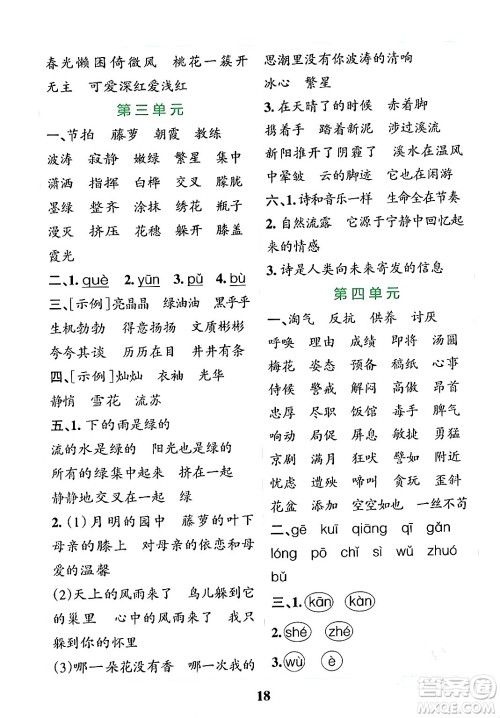 春光懒困倚微风 桃花一簇开
无主 可爱深红爱浅红
第三单元
一、节拍 藤萝 朝霞 教练
波涛 寂静 嫩绿 繁星 集中
潇洒 指挥 白桦 交叉 朦胧
墨绿 整齐 涂抹 绣花 瓶子
漫灭 挤压 花穗 躲开 膝盖
霞光
二、1. què 2. yūn 3. pǔ 4. bù
三、[示例]亮晶晶 绿油油 黑乎乎
生机勃勃 得意扬扬 文质彬彬
夸夸其谈 历历在目 井井有条
四、[示例]灿灿 衣袖 光华
静悄 雪花 流苏
五、1. 下的雨是绿的
流的水是绿的 阳光也是绿的
所有的绿集中起来 挤在一起
静静地交叉在一起 绿
2.(1)月明的园中 藤萝的叶下
母亲的膝上 对母亲的依恋和母
爱的温馨
(2)天上的风雨来了 鸟儿躲到它
的巢里 心中的风雨来了 我只
躲到你的怀里
(3)哪一朵花没有香 我的
思潮里没有你波涛的清响
冰心 繁星
3. 在天晴了的时候 赤着脚
携着手 踏着新泥 涉过溪流
新阳推开了阴霾了 溪水在温风
中晕皱 云的脚迹
六、1. 诗和音乐一样 生命全在节奏
2. 自然流露 它源于宁静中回忆起
来的情感
3. 诗是人类向未来寄发的信息
第四单元
一、淘气 反抗 供养 讨厌
呼唤 理由 成绩 即将 汤圆
梅花 姿态 预备 稿纸 心事
侍候 警戒 解闷 高傲 昂首
忠厚 尽职 饭馆 毒手 脾气
响动 局促 屏息 敏捷 勇猛
京剧 调頭 狂吠 譬如 附近
忧虑 遭殃 啼叫 贪玩 歪斜
花盆 添加 空空如也 一丝不苟
二、1. gē kuī qiāng qī gǎn
lóng pō chí sì wǔ zhuó
bǔ
三、1. kān kàn
2. shé zhé
3. wù è
18